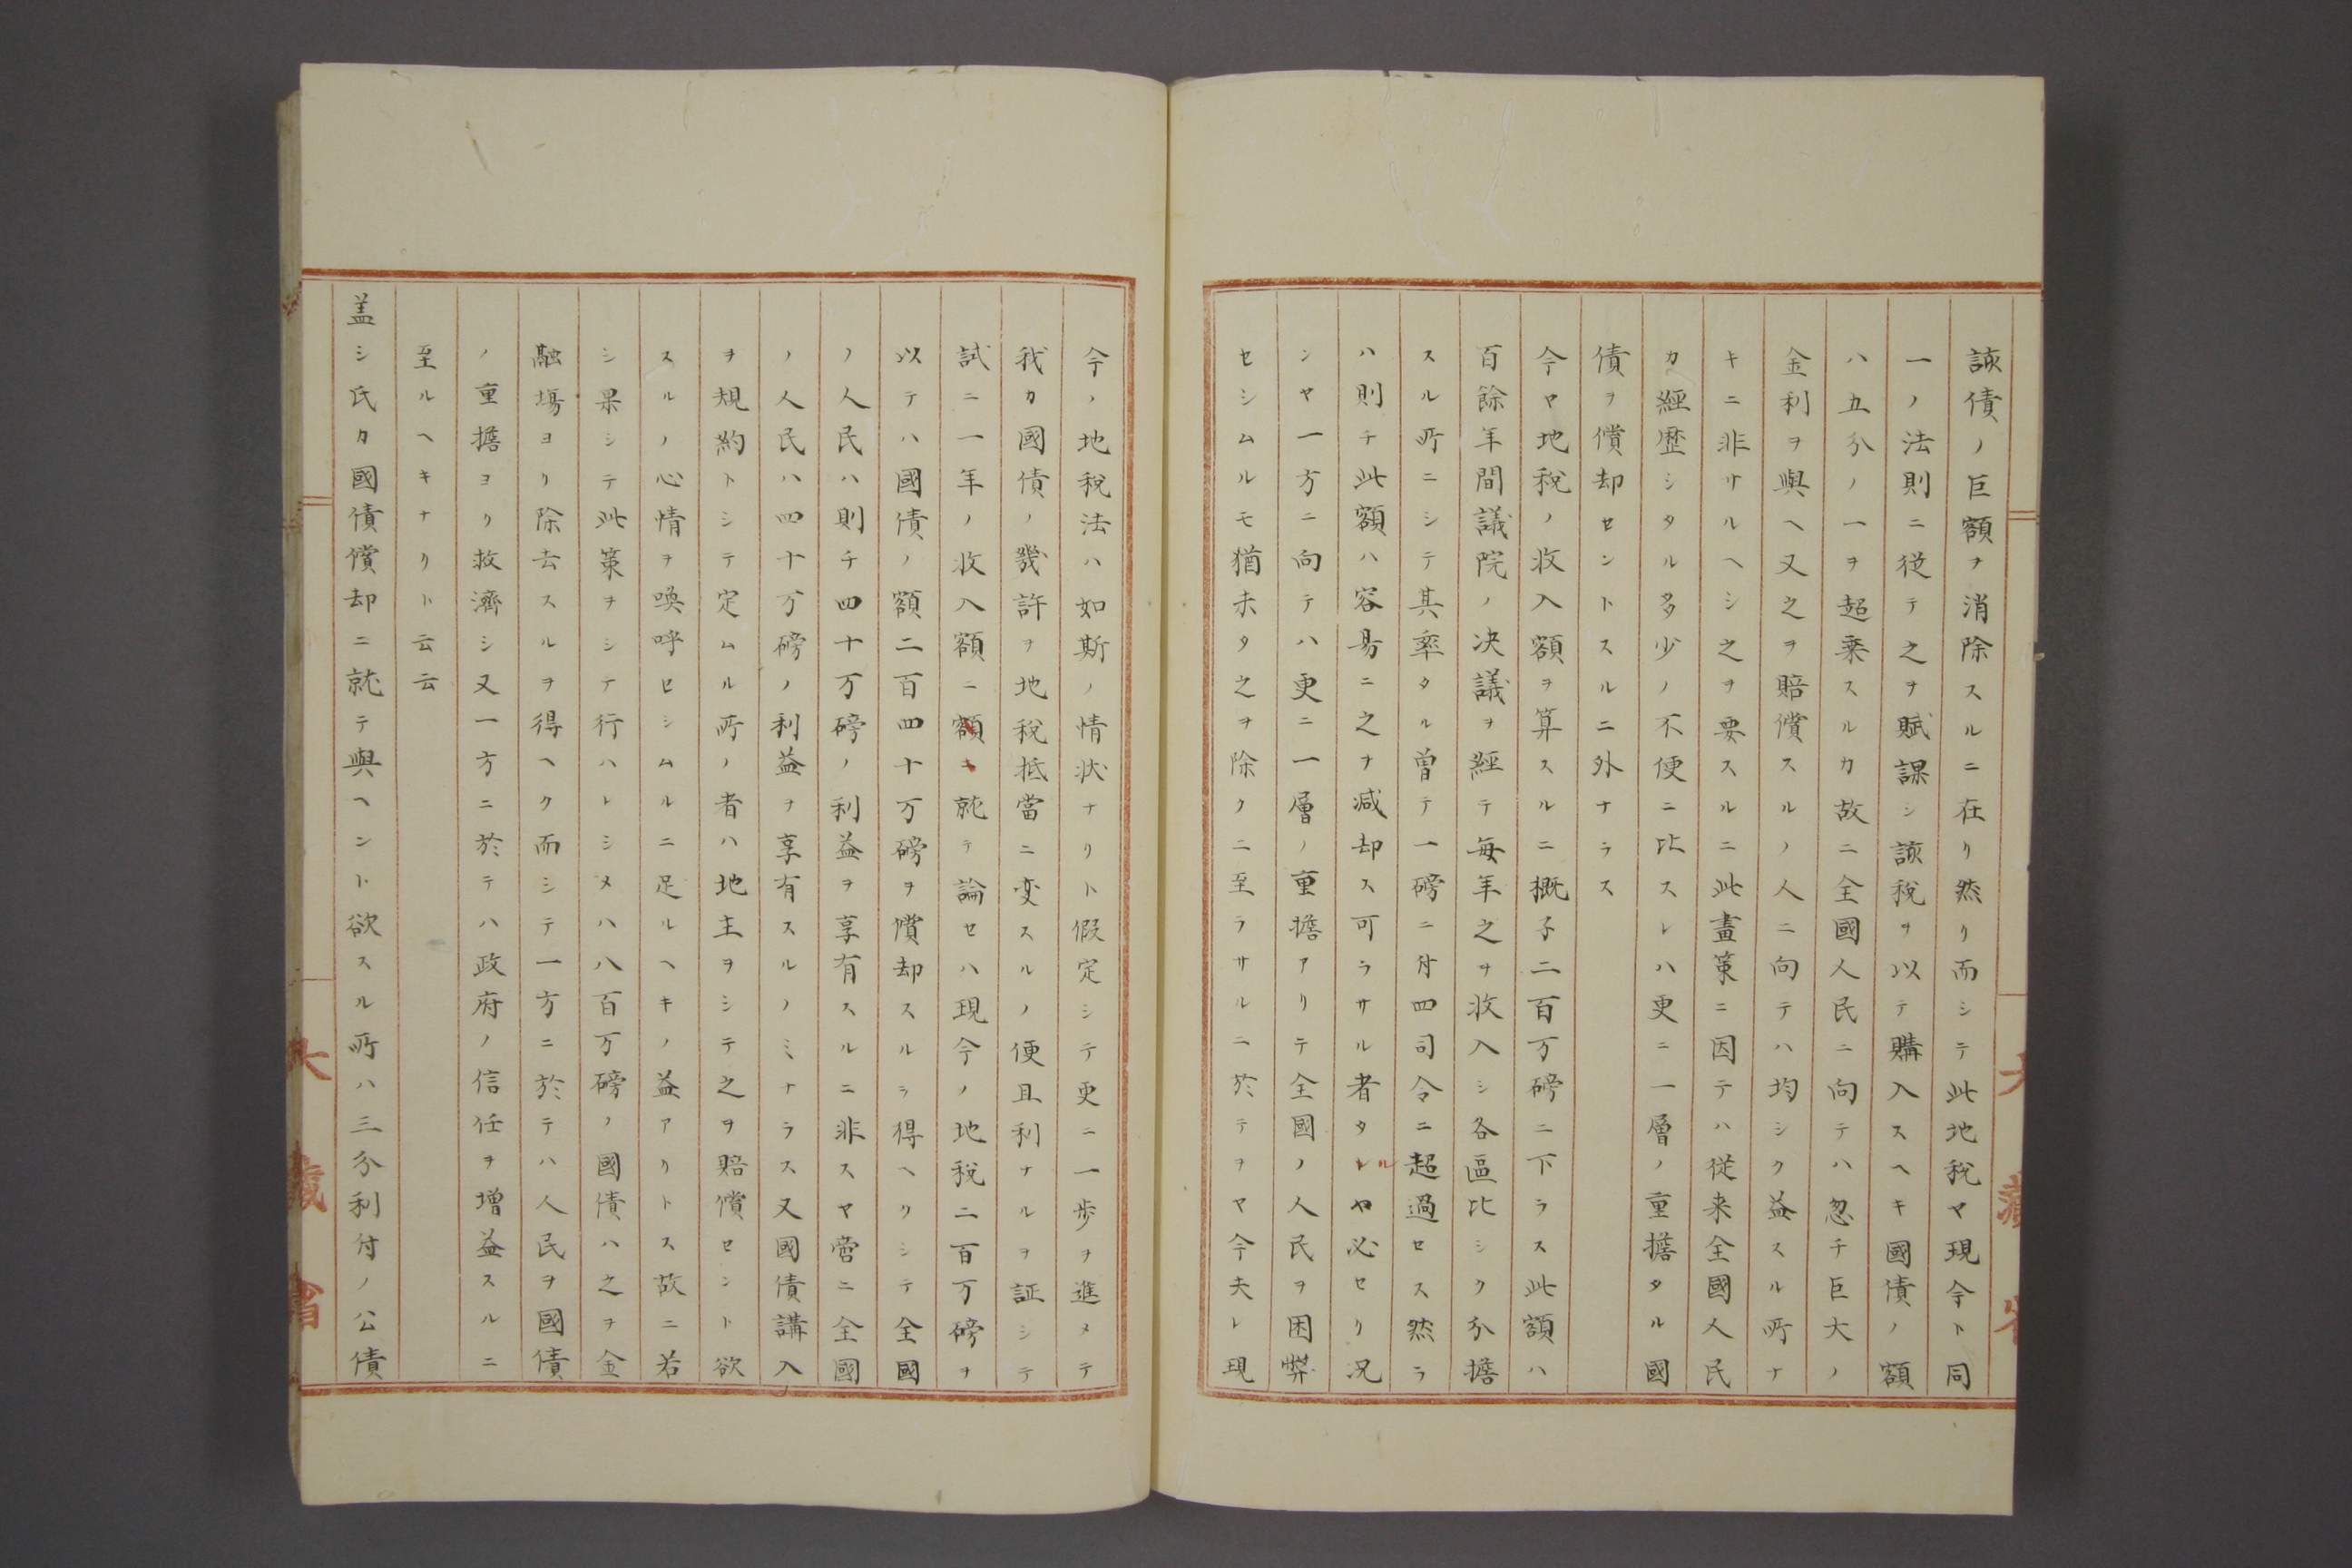 該債ノ巨額ヲ消除スルニ在リ然リ而シテ此地税ヤ現今ト同
一ノ法則ニ従テ之ヲ賦課シ該税ヲ以テ購入スヘキ國債ノ額
ハ五分ノ一ヲ超乗スルカ故ニ全國人民ニ向テハ忽チ巨大ノ
金利ヲ與ヘ又之ヲ賠償スルノ人ニ向テハ均シク益スル所ナ
キニ非サルヘシ之ヲ要スルニ此畫策ニ因テハ従来全國人民
カ經歴シタル多少ノ不便ニ比スレハ更ニ一層ノ重擔タル國
債ヲ償却セントスルニ外ナラス
今ヤ地税ノ收入額ヲ算スルニ概子二百万磅ニ下ラス此額ハ
百餘年間議院ノ决議ヲ経テ毎年之ヲ收入シ各區比シク分擔
スル所ニシテ其率タル曽テ一磅ニ付四司令ニ超過セス然ラ
ハ則チ此額ハ容易ニ之ヲ減却ス可ラサル者タルヤ必セリ况
ンヤ一方ニ向テハ更ニ一層ノ重擔アリテ全國ノ人民ヲ困弊
セシムルモ猶未タ之ヲ除クニ至ラサルニ於テヲヤ今夫レ現
今ノ地税法ハ如斯ノ情状ナリト假定シテ更ニ一歩ヲ進メテ
我カ國債ノ幾許ヲ地税抵當ニ変スルノ便且利ナルヲ証シテ
試ニ一年ノ收入額ニ就テ論セハ現今ノ地税二百万磅ヲ
以テハ國債ノ額二百四十万磅ヲ償却スルヲ得ヘクシテ全國
ノ人民ハ則チ四十万磅ノ利益ヲ享有スルニ非スヤ啻ニ全國
ノ人民ハ四十万磅ノ利益ヲ享有スルノミナラス又國債講入
ヲ規約トシテ定ムル所ノ者ハ地主ヲシテ之ヲ賠償セント欲
スルノ心情ヲ喚呼セシムルニ足ルヘキノ益アリトス故ニ若
シ果シテ此策ヲシテ行ハレシメハ八百万磅ノ國債ハ之ヲ金
融塲ヨリ除去スルヲ得ヘク而シテ一方ニ於テハ人民ヲ國債
ノ重擔ヨリ救濟シ又一方ニ於テハ政府ノ信任ヲ増益スルニ
至ルヘキナリト云云
盖シ氏カ國債償却ニ就テ與ヘント欲スル所ハ三分利付ノ公債
大藏省
大藏省